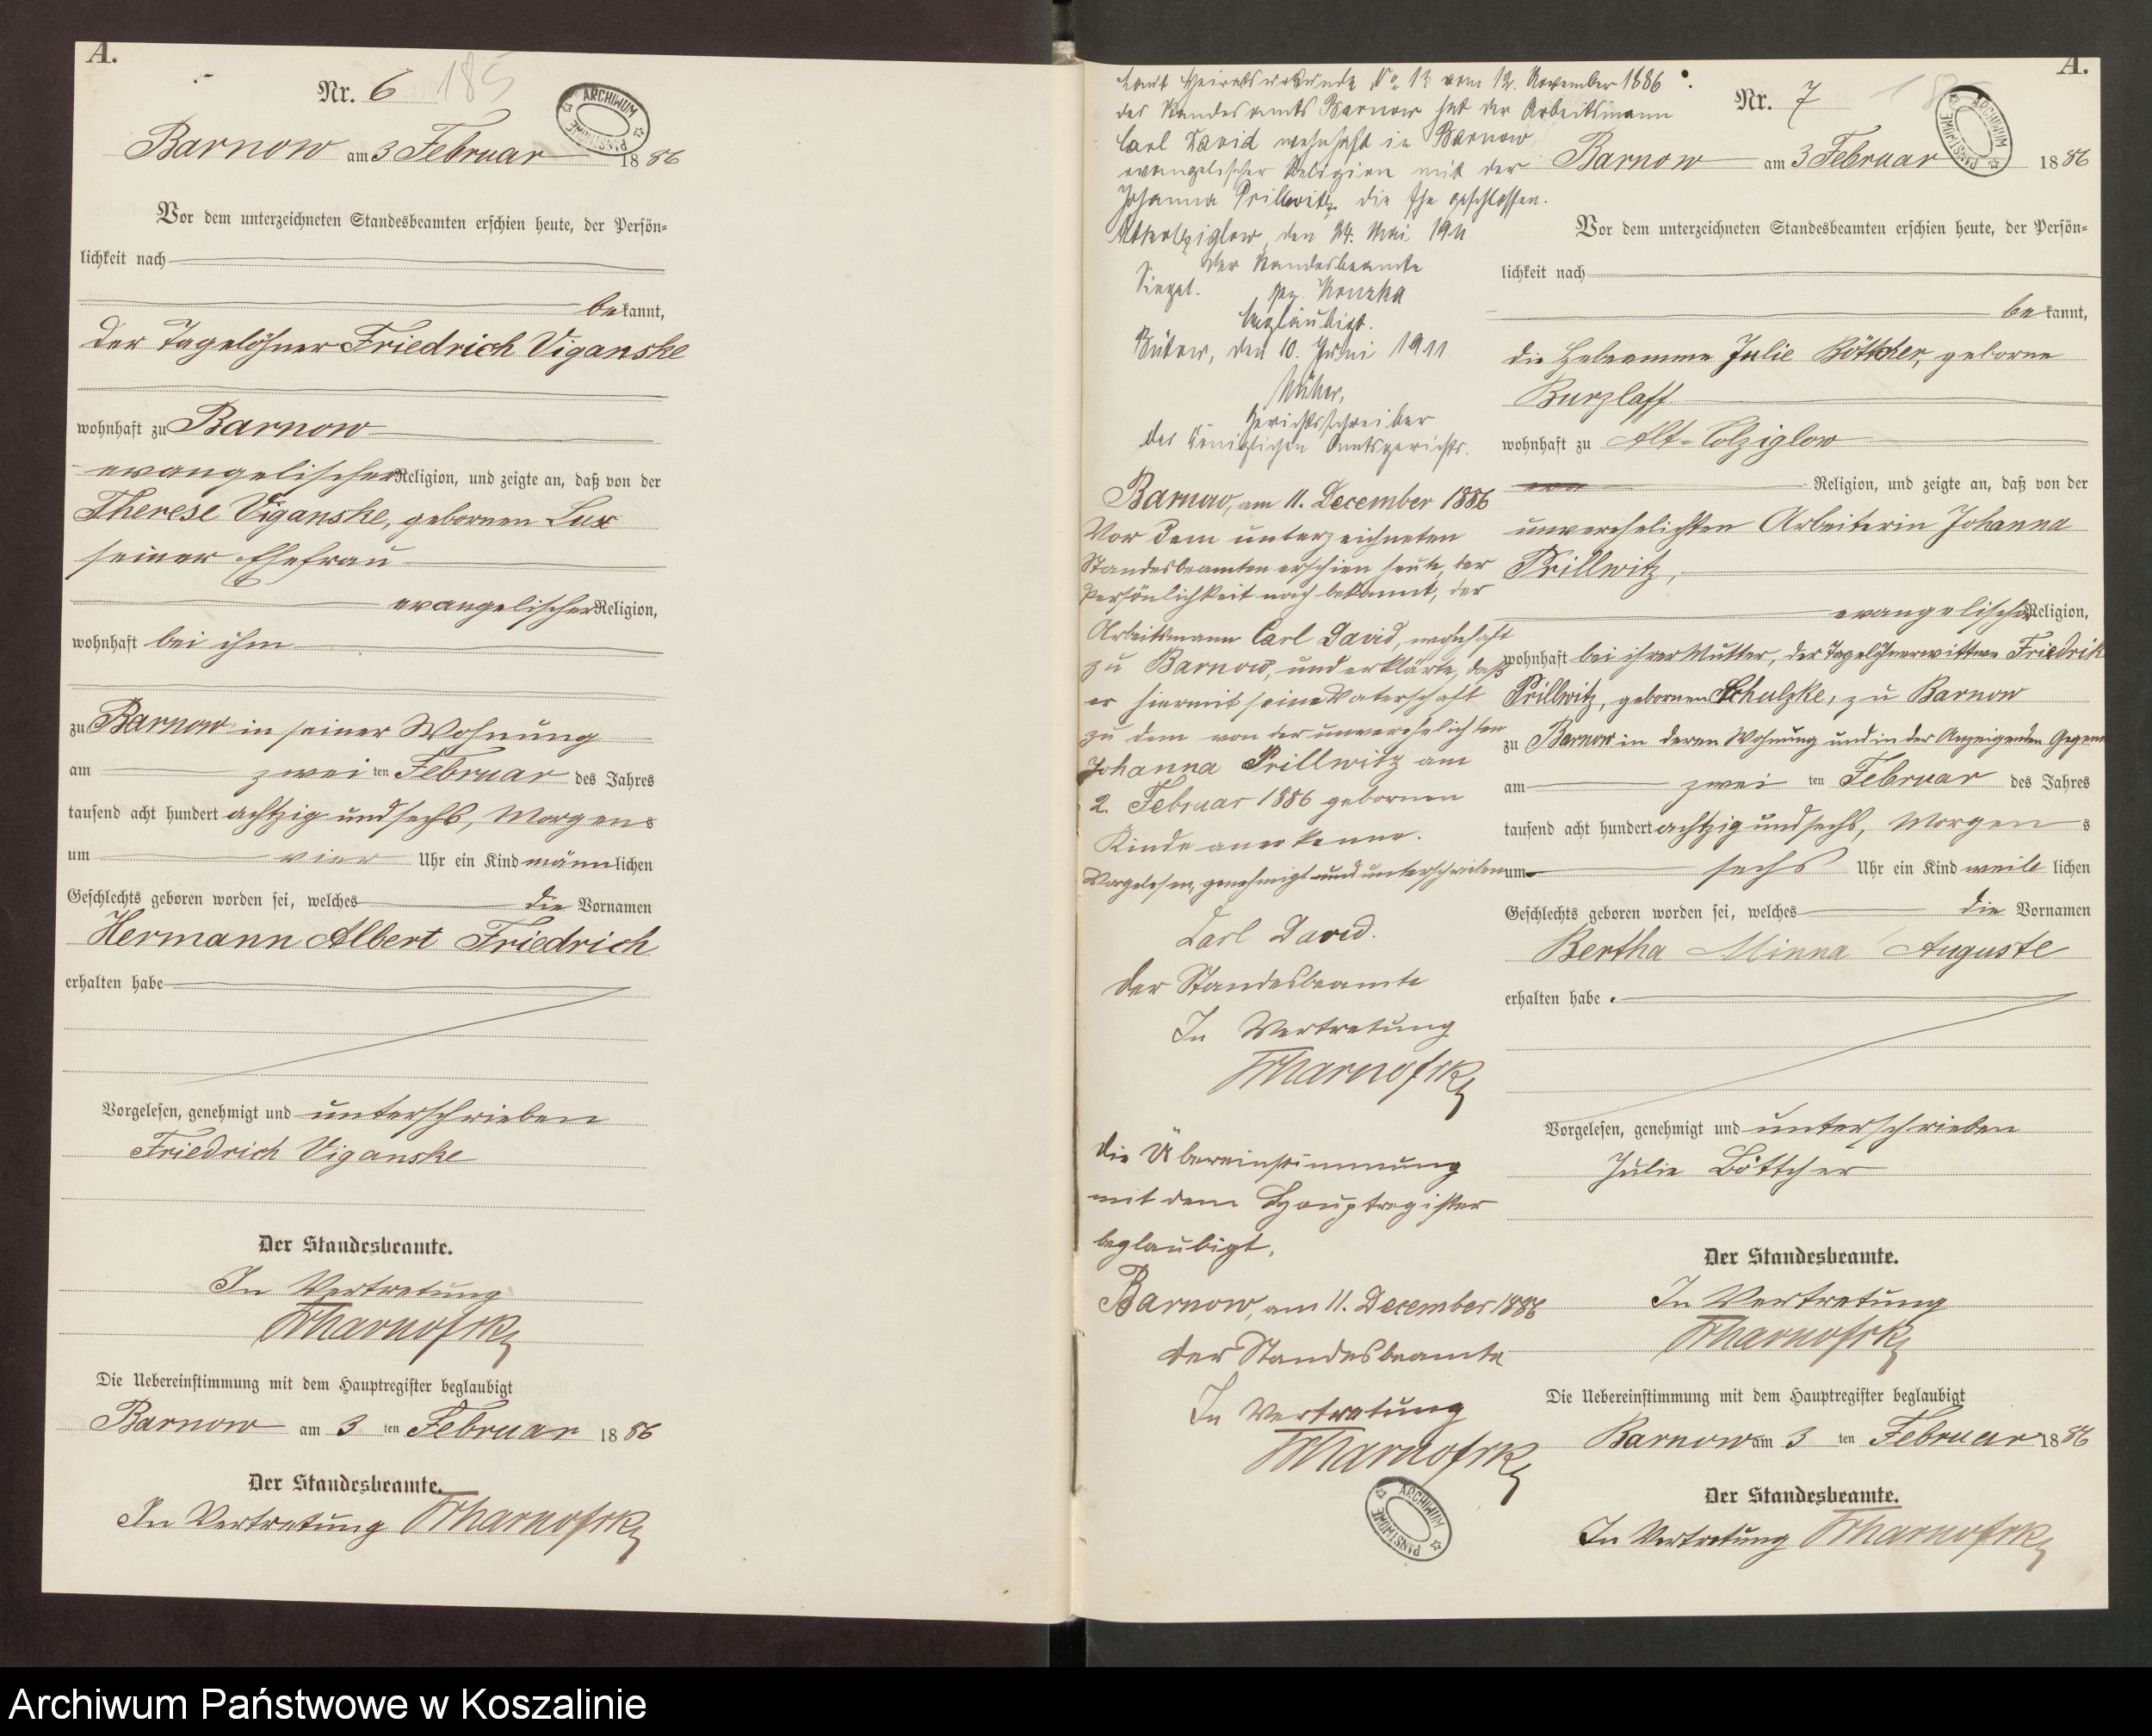 A.
Nr. 6
185
ARCHIWUM PAŃSTWOWE
Barnow am 3 Februar 1886
Vor dem unterzeichneten Standesbeamten erschien heute, der Persön-
lichkeit nach
bekannt,
der Tagelöhner Friedrich Viganske
wohnhaft zu Barnow
evangelischer Religion, und zeigte an, daß von der
Therese Viganske, gebornen Lux
seiner Ehefrau
evangelischer Religion,
wohnhaft bei ihm
zu Barnow in seiner Wohnung
am zwei ten Februar des Jahres
tausend acht hundert achtzig und sechs, Morgens
um vier Uhr ein Kind männlichen
Geschlechts geboren worden sei, welches die Vornamen
Hermann Albert Friedrich
erhalten habe
Vorgelesen, genehmigt und unterschrieben
Friedrich Viganske
Der Standesbeamte.
In Vertretung
Die Uebereinstimmung mit dem Hauptregister beglaubigt
Barnow am 3 ten Februar 1886
Der Standesbeamte.
In Vertretung
Laut Heiratsurkunde No. 12 vom 12. November 1886
des Standesamts Barnow hat der Arbeitsmann
Carl David wohnhaft in Barnow
evangelischer Religion mit der
Johanna Prillwitz die Ehe geschlossen.
Altkolziglow, den 24. Mai 1911
Der Standesbeamte
Siegel. gez.
Beglaubigt.
Bütow, den 10. Juni 1911
Gerichtsschreiber
des Königlichen Amtsgerichts.
Barnow, am 11. December 1886
Vor dem unterzeichneten
Standesbeamten erschien heute, der
Persönlichkeit nach bekannt, der
Arbeitsmann Carl David, wohnhaft
zu Barnow, und erklärte, daß
er hiermit seine Vaterschaft
zu dem von der unverehelichten
Johanna Prillwitz am
2. Februar 1886 gebornen
Kinde anerkenne.
Vorgelesen, genehmigt und unterschrieben
Carl David.
Der Standesbeamte
In Vertretung
Die Übereinstimmung
mit dem Hauptregister
beglaubigt,
Barnow, am 11. December 1886
Der Standesbeamte
In Vertretung
ARCHIWUM PAŃSTWOWE
A.
Nr. 7
ARCHIWUM PAŃSTWOWE
Barnow am 3 Februar 1886
Vor dem unterzeichneten Standesbeamten erschien heute, der Persön-
lichkeit nach
bekannt,
die Hebeamme Julie Böttcher, geborne
Burzlaff
wohnhaft zu Alt-Colziglow
Religion, und zeigte an, daß von der
unverehelichten Arbeiterin Johanna
Prillwitz,
evangelischer Religion,
wohnhaft bei ihrer Mutter, der Tagelöhnerwittwe Friedrik
Prillwitz, gebornen Schulzke, zu Barnow
zu Barnow in deren Wohnung und in der Anzeigenden Gegenw
am zwei ten Februar des Jahres
tausend acht hundert achtzig und sechs, Morgens
um sechs Uhr ein Kind weib lichen
Geschlechts geboren worden sei, welches die Vornamen
Bertha Minna Auguste
erhalten habe.
Vorgelesen, genehmigt und unterschrieben
Julie Böttcher
Der Standesbeamte.
In Vertretung
Die Uebereinstimmung mit dem Hauptregister beglaubigt
Barnow am 3 ten Februar 1886
Der Standesbeamte.
In Vertretung
Archiwum Państwowe w Koszalinie